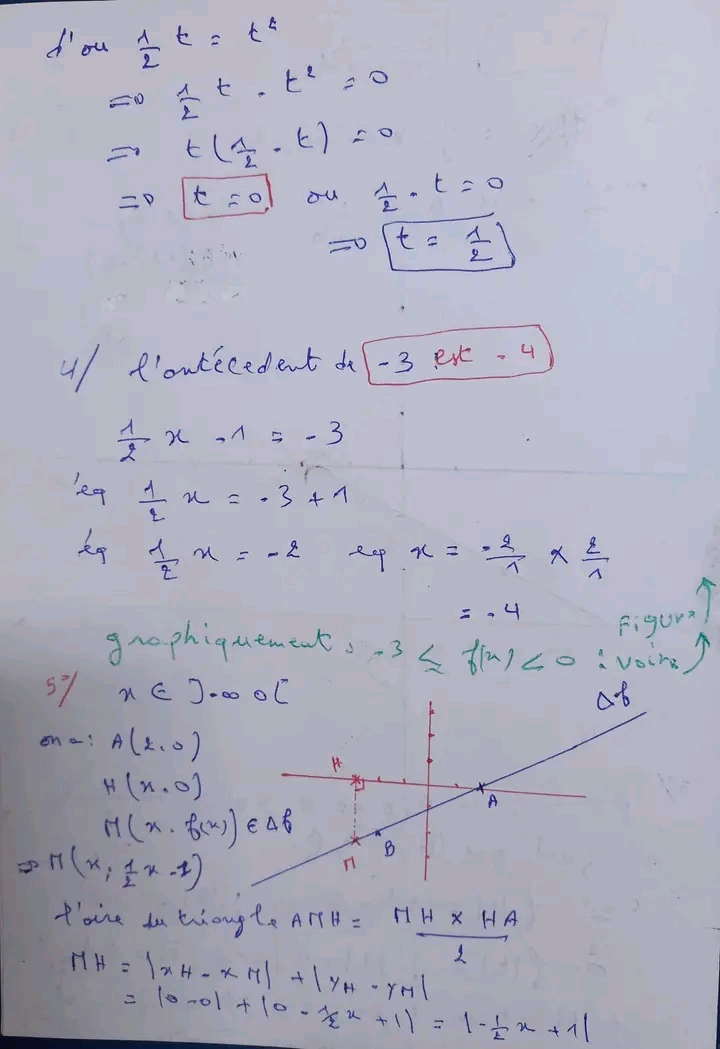 d'ou 1/2 t = t²
=> 1/2 t - t² = 0
=> t(1/2 - t) = 0
=> t = 0 ou 1/2 - t = 0
=> t = 1/2
4/ l'antécedent de -3 est -4
1/2 x - 1 = -3
éq 1/2 x = -3 + 1
éq 1/2 x = -2 eq x = -2/1 × 2/1
= -4
graphiquement : -3 ≤ f(x) < 0 : voire Figure
5°/ x ∈ ]-∞ 0[
on a : A(2.0)
H(x.0)
M(x. f(x)) ∈ Δf
=> M(x; 1/2 x - 1)
Δf
H
A
B
M
l'aire du triangle AMH = MH × HA / 2
MH = |xH - xM| + |yH - yM|
= |0 - 0| + |0 - 1/2 x + 1| = |-1/2 x + 1|